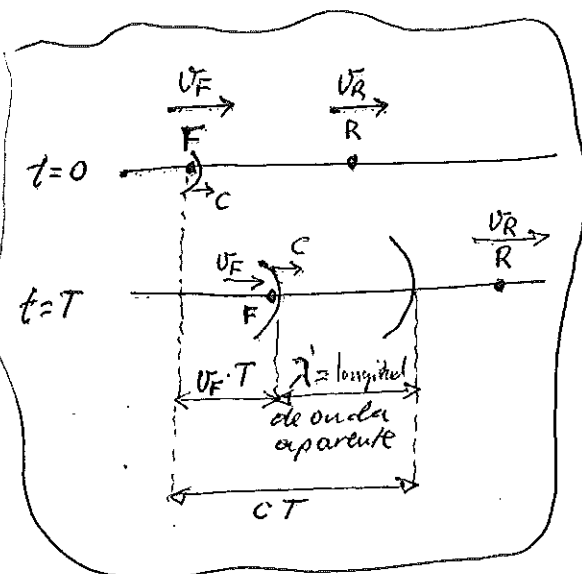 v_F v_R
F R
t=0
C
v_R
v_F C R
t=T
F
v_F · T λ' = longitud
de onda
aparente
C T